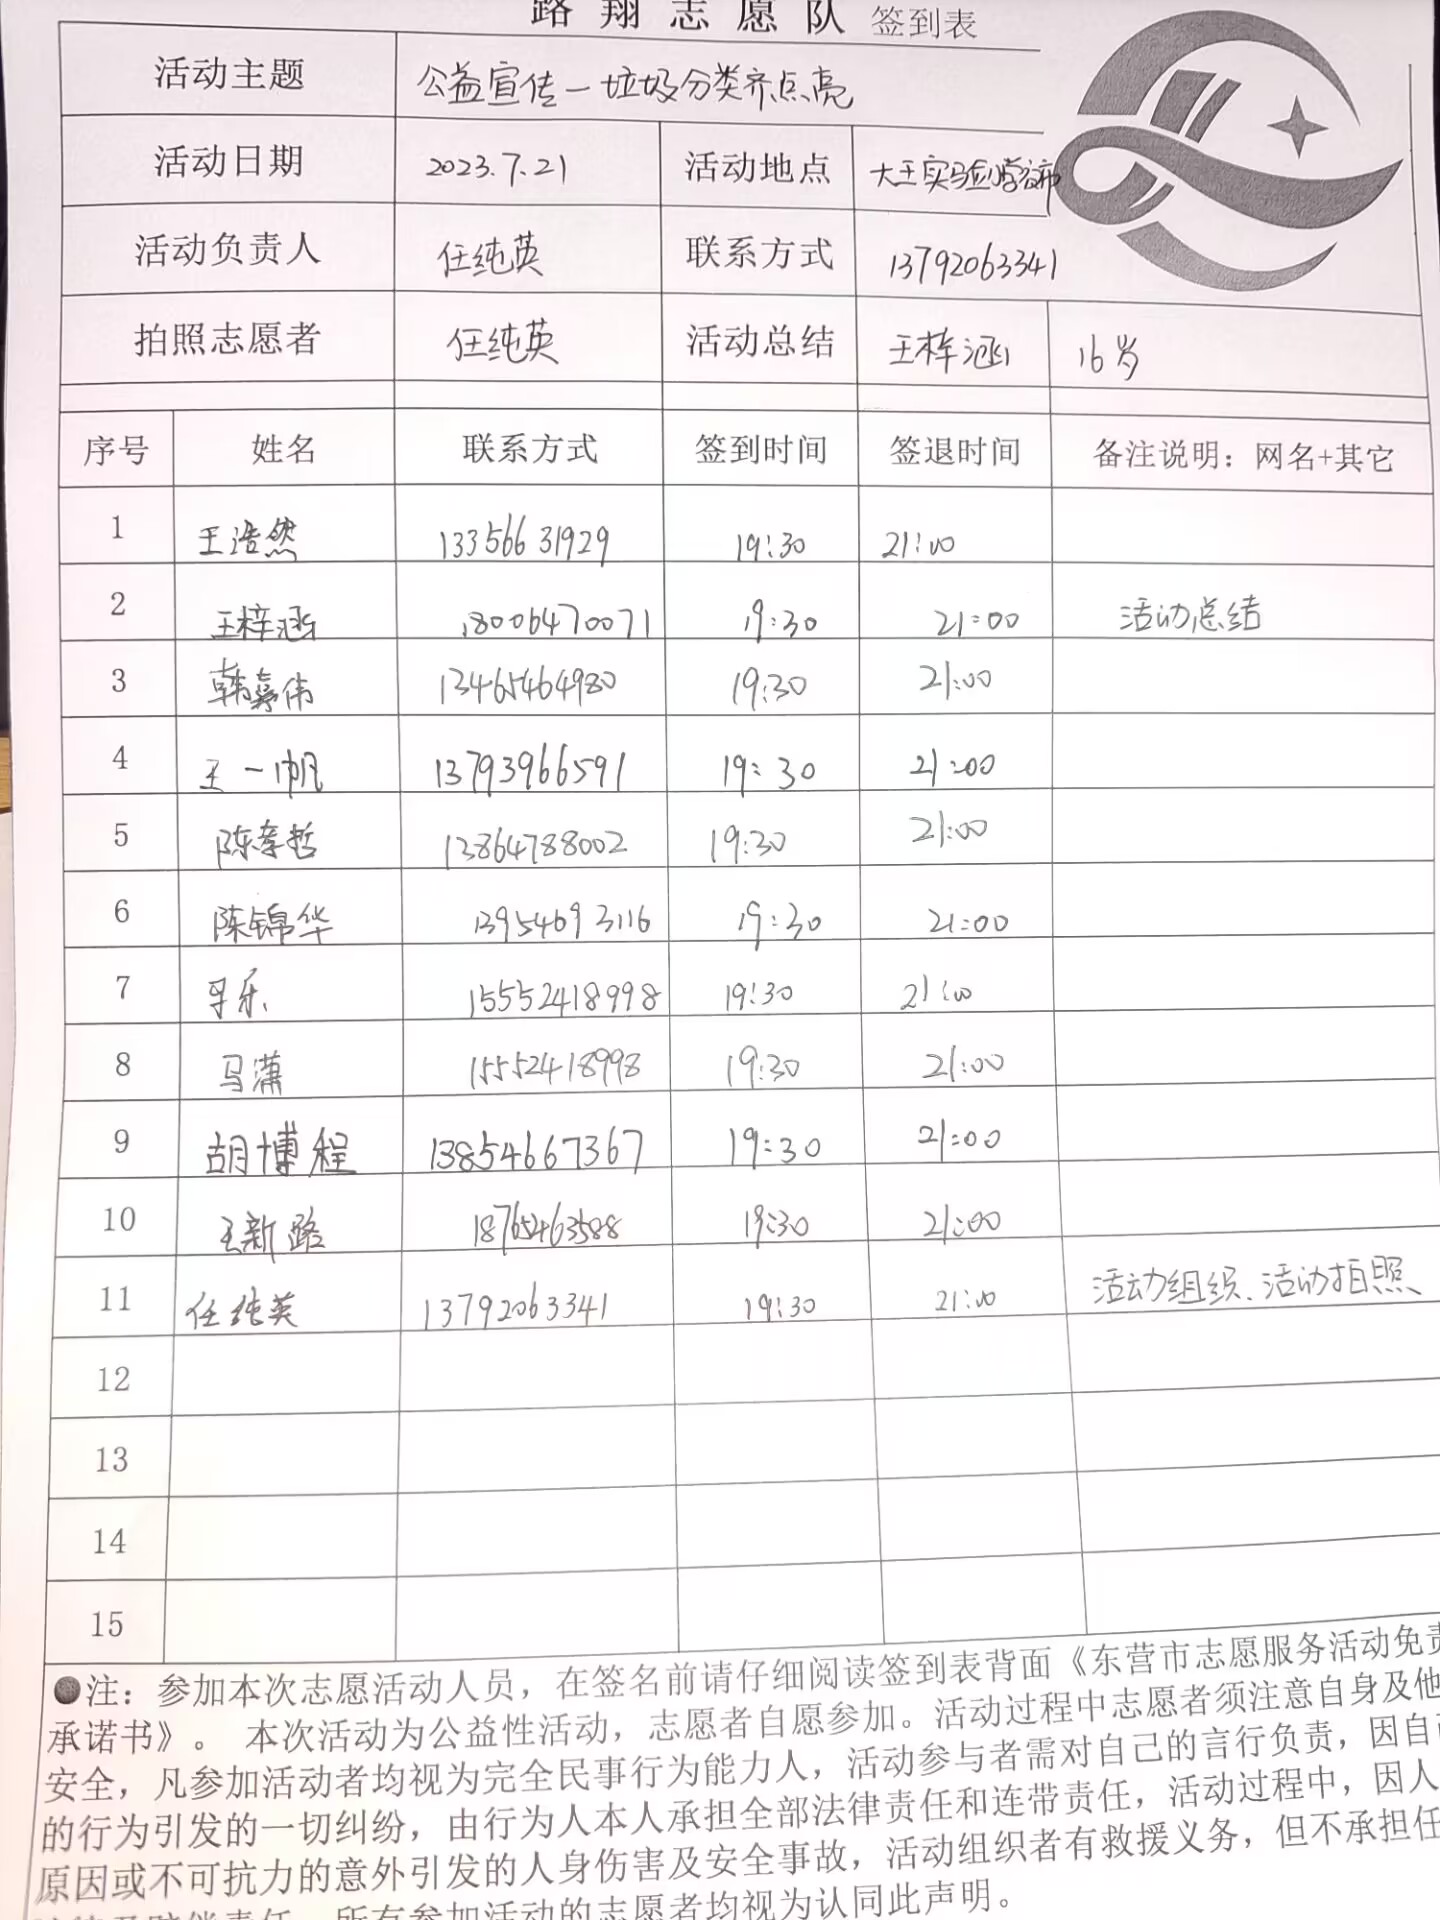 路翔志愿队 签到表
活动主题 公益宣传—垃圾分类齐点亮
活动日期 2023.7.21 活动地点 大王实验小学夜市
活动负责人 任纯英 联系方式 13792063341
拍照志愿者 任纯英 活动总结 王梓涵 16岁
序号 姓名 联系方式 签到时间 签退时间 备注说明：网名+其它
1 王浩然 13356631929 19:30 21:00
2 王梓涵 18006470071 19:30 21:00 活动总结
3 韩嘉伟 13465464980 19:30 21:00
4 王一帆 13793966591 19:30 21:00
5 陈孝哲 13864788002 19:30 21:00
6 陈锦华 13954693116 19:30 21:00
7 15552418998 19:30 21:00
8 马潇 15552418998 19:30 21:00
9 胡博程 13854667367 19:30 21:00
10 王新路 18765463588 19:30 21:00
11 任纯英 13792063341 19:30 21:00 活动组织、活动拍照
12
13
14
15
●注：参加本次志愿活动人员，在签名前请仔细阅读签到表背面《东营市志愿服务活动免责
承诺书》。 本次活动为公益性活动，志愿者自愿参加。活动过程中志愿者须注意自身及他
安全，凡参加活动者均视为完全民事行为能力人，活动参与者需对自己的言行负责，因自己
的行为引发的一切纠纷，由行为人本人承担全部法律责任和连带责任，活动过程中，因人
原因或不可抗力的意外引发的人身伤害及安全事故，活动组织者有救援义务，但不承担任
所有参加活动的志愿者均视为认同此声明。